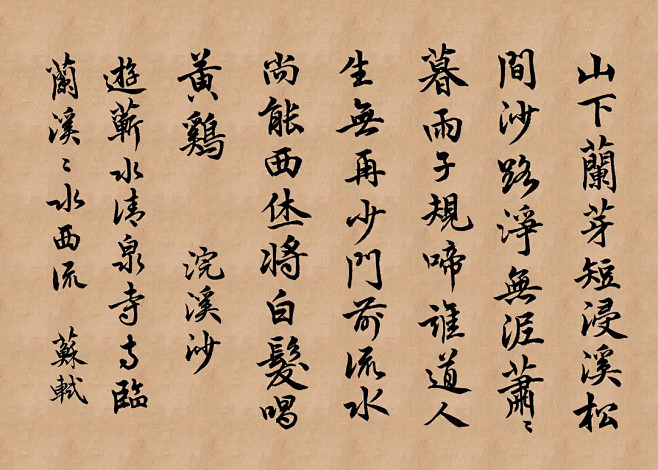 山下蘭芽短浸溪松
間沙路淨無泥蕭〻
暮雨子規啼誰道人
生無再少門前流水
尚能西休將白髮唱
黃鷄 浣溪沙
遊蘄水清泉寺寺臨
蘭溪〻水西流 蘇軾